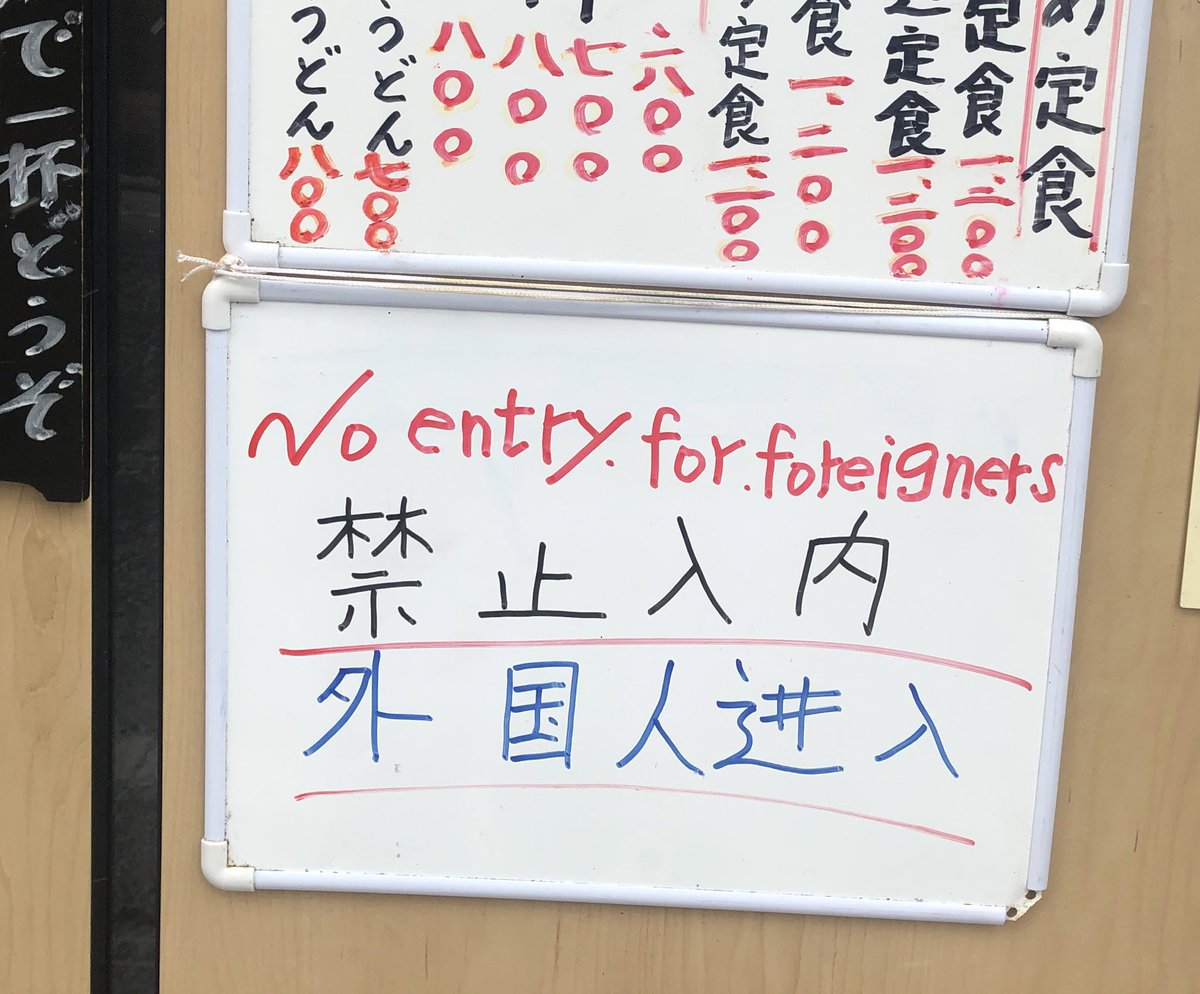 定食
定食 一、二〇〇
定食 一、二〇〇
食 一、二〇〇
定食 一、一〇〇
六〇〇
七〇〇
八〇〇
八〇〇
うどん 七〇〇
うどん 八〇〇
で一杯どうぞ
No entry. for. foreigners
禁止入内
外国人进入